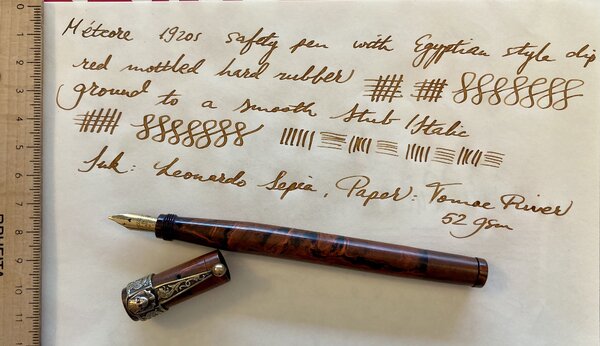 Météore 1920s safety pen with Egyptian style clip
red mottled hard rubber
ground to a smooth Stub/Italic
Ink: Leonardo Sepia, Paper: Tomoe River
52 gsm
0
1
2
3
4
5
6
7
8
9
10
11